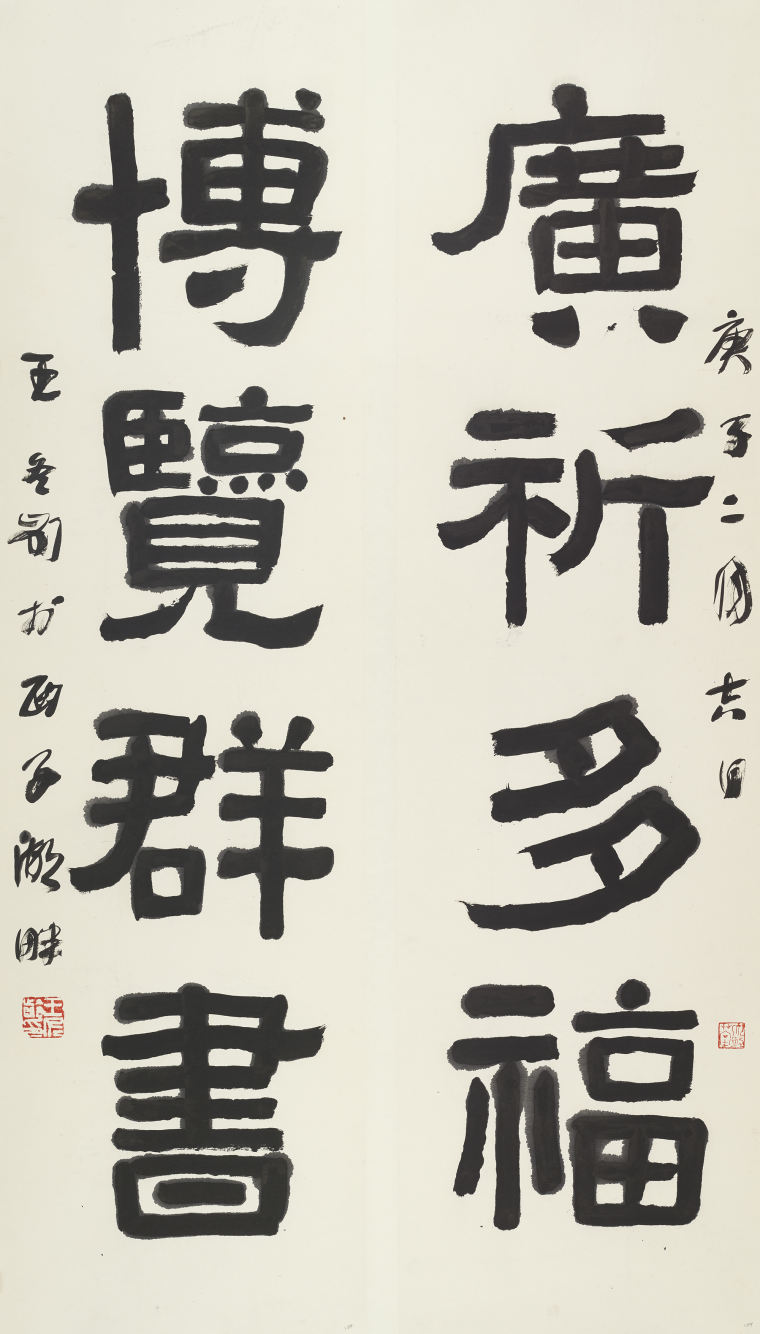 庚子二月吉日
廣祈多福
博覽群書
王冬齡於西子湖畔